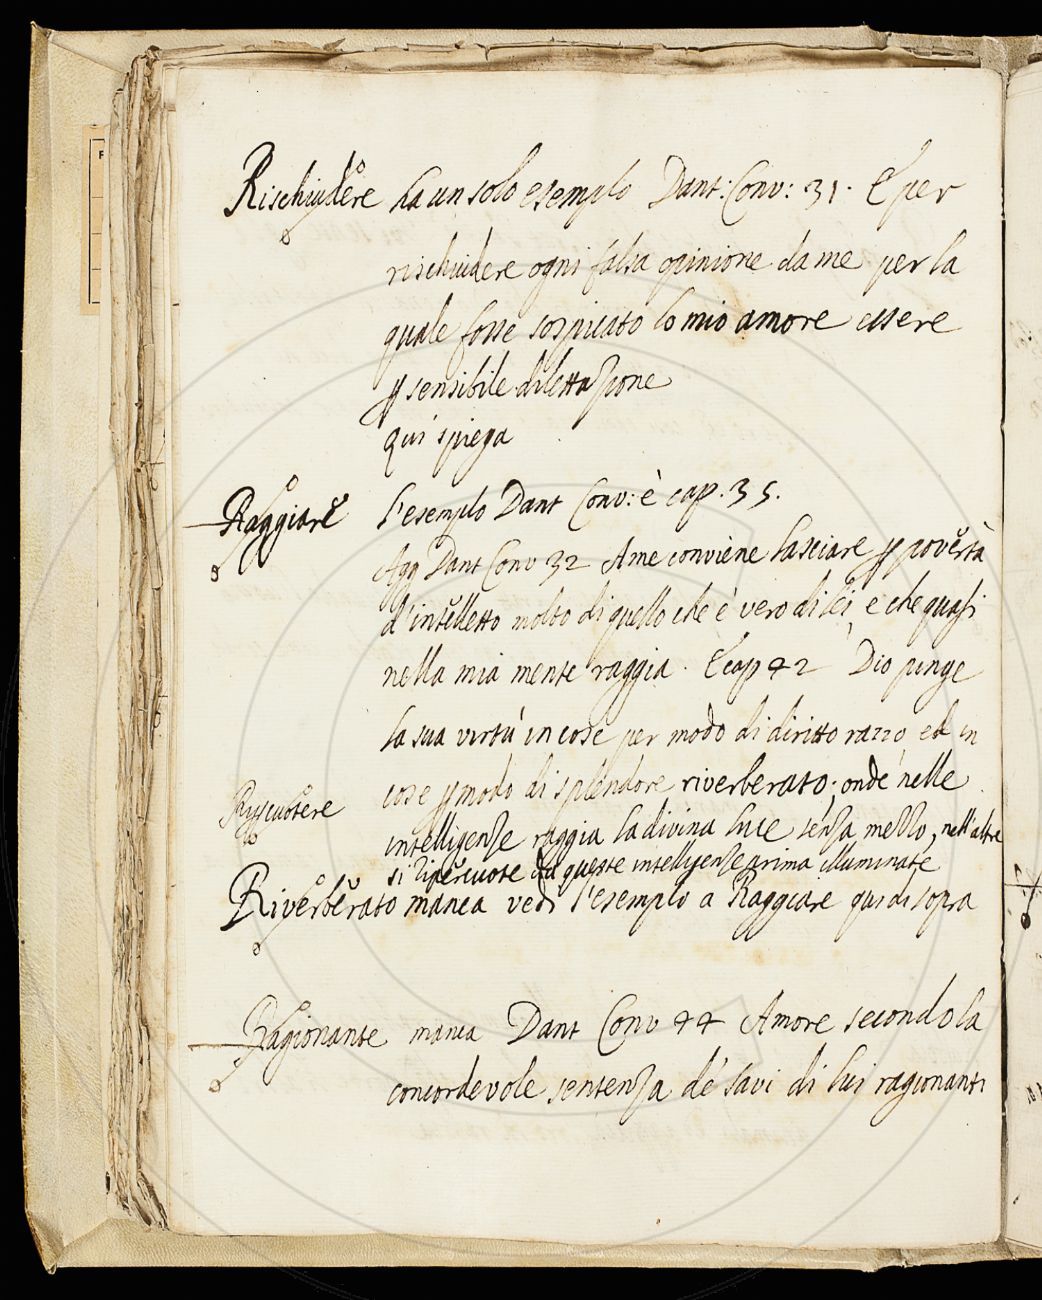 Rischiudere ha un solo esemplo Dant: Conv: 31. E per
rischiudere ogni falsa opinione da me per la
quale fosse sospicato lo mio amore essere
p sensibile dilettazione
qui spiega
Raggiare l'esemplo Dant Conv: è cap. 35.
Agg Dant Conv 32 A me conviene lasciare p povertà
d'intelletto molto di quello che è vero di lei, e che quasi
nella mia mente raggia. E cap 42 Dio pinge
la sua virtù in cose per modo di diritto razzo, ed in
cose p modo di splendore riverberato; onde nelle
Ripercuotere
intelligenze raggia la divina luce senza mezzo, nell'altre
si ripercuote da queste intelligenze prima illuminate
Riverberato manca vedi l'esemplo a Raggiare qui di sopra
Ragionante manca Dant Conv 44 Amore secondo la
concordevole sentenza de' savi di lui ragionanti